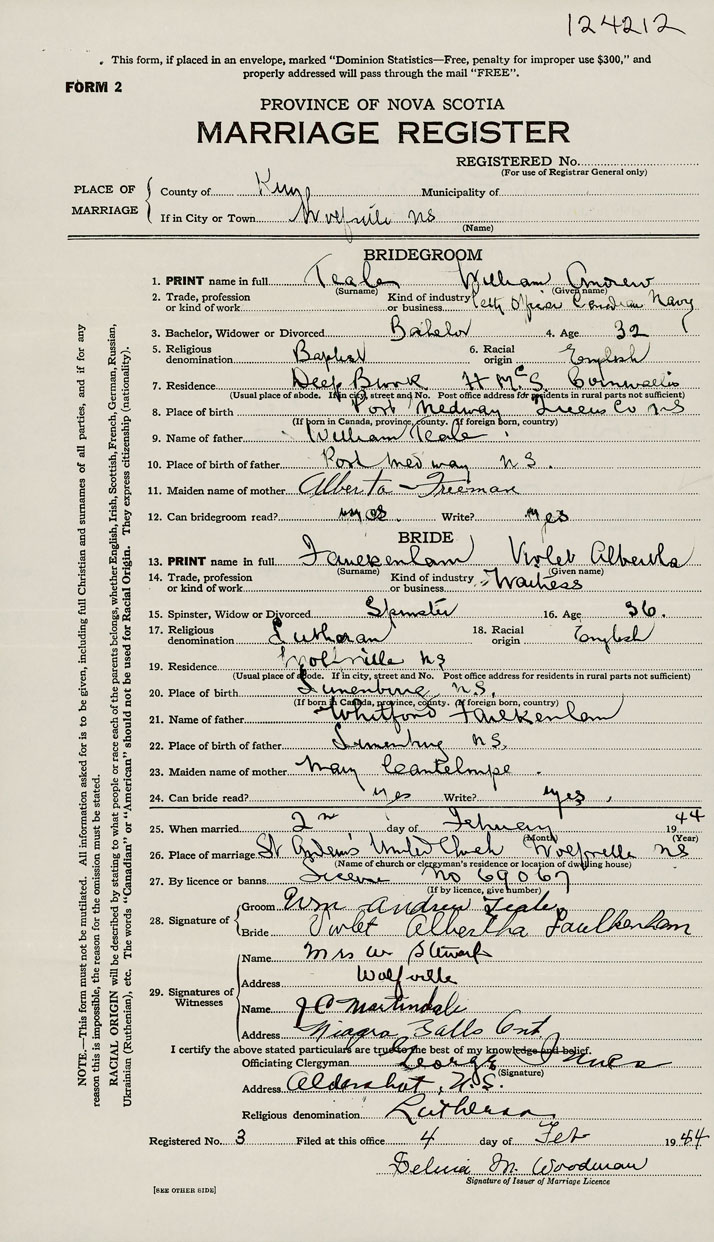 124212
This form, if placed in an envelope, marked "Dominion Statistics—Free, penalty for improper use $300," and
properly addressed will pass through the mail "FREE".
FORM 2
PROVINCE OF NOVA SCOTIA
MARRIAGE REGISTER
REGISTERED No.
(For use of Registrar General only)
PLACE OF MARRIAGE
County of Kings Municipality of
If in City or Town Wolfville NS
(Name)
BRIDEGROOM
1. PRINT name in full Teale William Andrew
(Surname) (Given name)
2. Trade, profession or kind of work Kind of industry or business Petty Officer Canadian Navy
3. Bachelor, Widower or Divorced Bachelor 4. Age 32
5. Religious denomination Baptist 6. Racial origin English
7. Residence Deep Brook H M C S Cornwallis
(Usual place of abode. If in city, street and No. Post office address for residents in rural parts not sufficient)
8. Place of birth Port Medway Queens Co NS
(If born in Canada, province, county. If foreign born, country)
9. Name of father William Teale
10. Place of birth of father Port Medway N S.
11. Maiden name of mother Alberta Freeman
12. Can bridegroom read? yes Write? yes
BRIDE
13. PRINT name in full Faulkenham Violet Albertha
(Surname) (Given name)
14. Trade, profession or kind of work Kind of industry or business Waitress
15. Spinster, Widow or Divorced Spinster 16. Age 36.
17. Religious denomination Lutheran 18. Racial origin English
19. Residence Wolfville NS
(Usual place of abode. If in city, street and No. Post office address for residents in rural parts not sufficient)
20. Place of birth Lunenburg N.S.
(If born in Canada, province, county. If foreign born, country)
21. Name of father Whitford Faulkenham
22. Place of birth of father Lunenburg N.S.
23. Maiden name of mother Mary
24. Can bride read? yes Write? yes,
25. When married 2nd day of February 1944
(Month) (Year)
26. Place of marriage St Andrew's United Church Wolfville NS
(Name of church or clergyman's residence or location of dwelling house)
27. By licence or banns License No 69067
(If by licence, give number)
28. Signature of
Groom Wm Andrew Teale
Bride Violet Albertha Faulkenham
29. Signatures of Witnesses
Name Mrs W Stewart
Address Wolfville
Name J C Martindale
Address Niagra Falls Ont
I certify the above stated particulars are true to the best of my knowledge and belief.
Officiating Clergyman George Innes
(Signature)
Address Aldershot, N.S.
Religious denomination Lutheran
Registered No. 3 Filed at this office 4 day of Feb 1944
Selina M. Woodman
Signature of Issuer of Marriage Licence
[SEE OTHER SIDE]
NOTE.—This form must not be mutilated. All information asked for is to be given, including full Christian and surnames of all parties, and if for any
reason this is impossible, the reason for the omission must be stated.
RACIAL ORIGIN will be described by stating to what people or race each of the parents belongs, whether English, Irish, Scottish, French, German, Russian,
Ukrainian (Ruthenian), etc. The words "Canadian" or "American" should not be used for Racial Origin. They express citizenship (nationality).